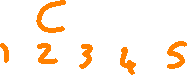 C
1 2 3 4 5